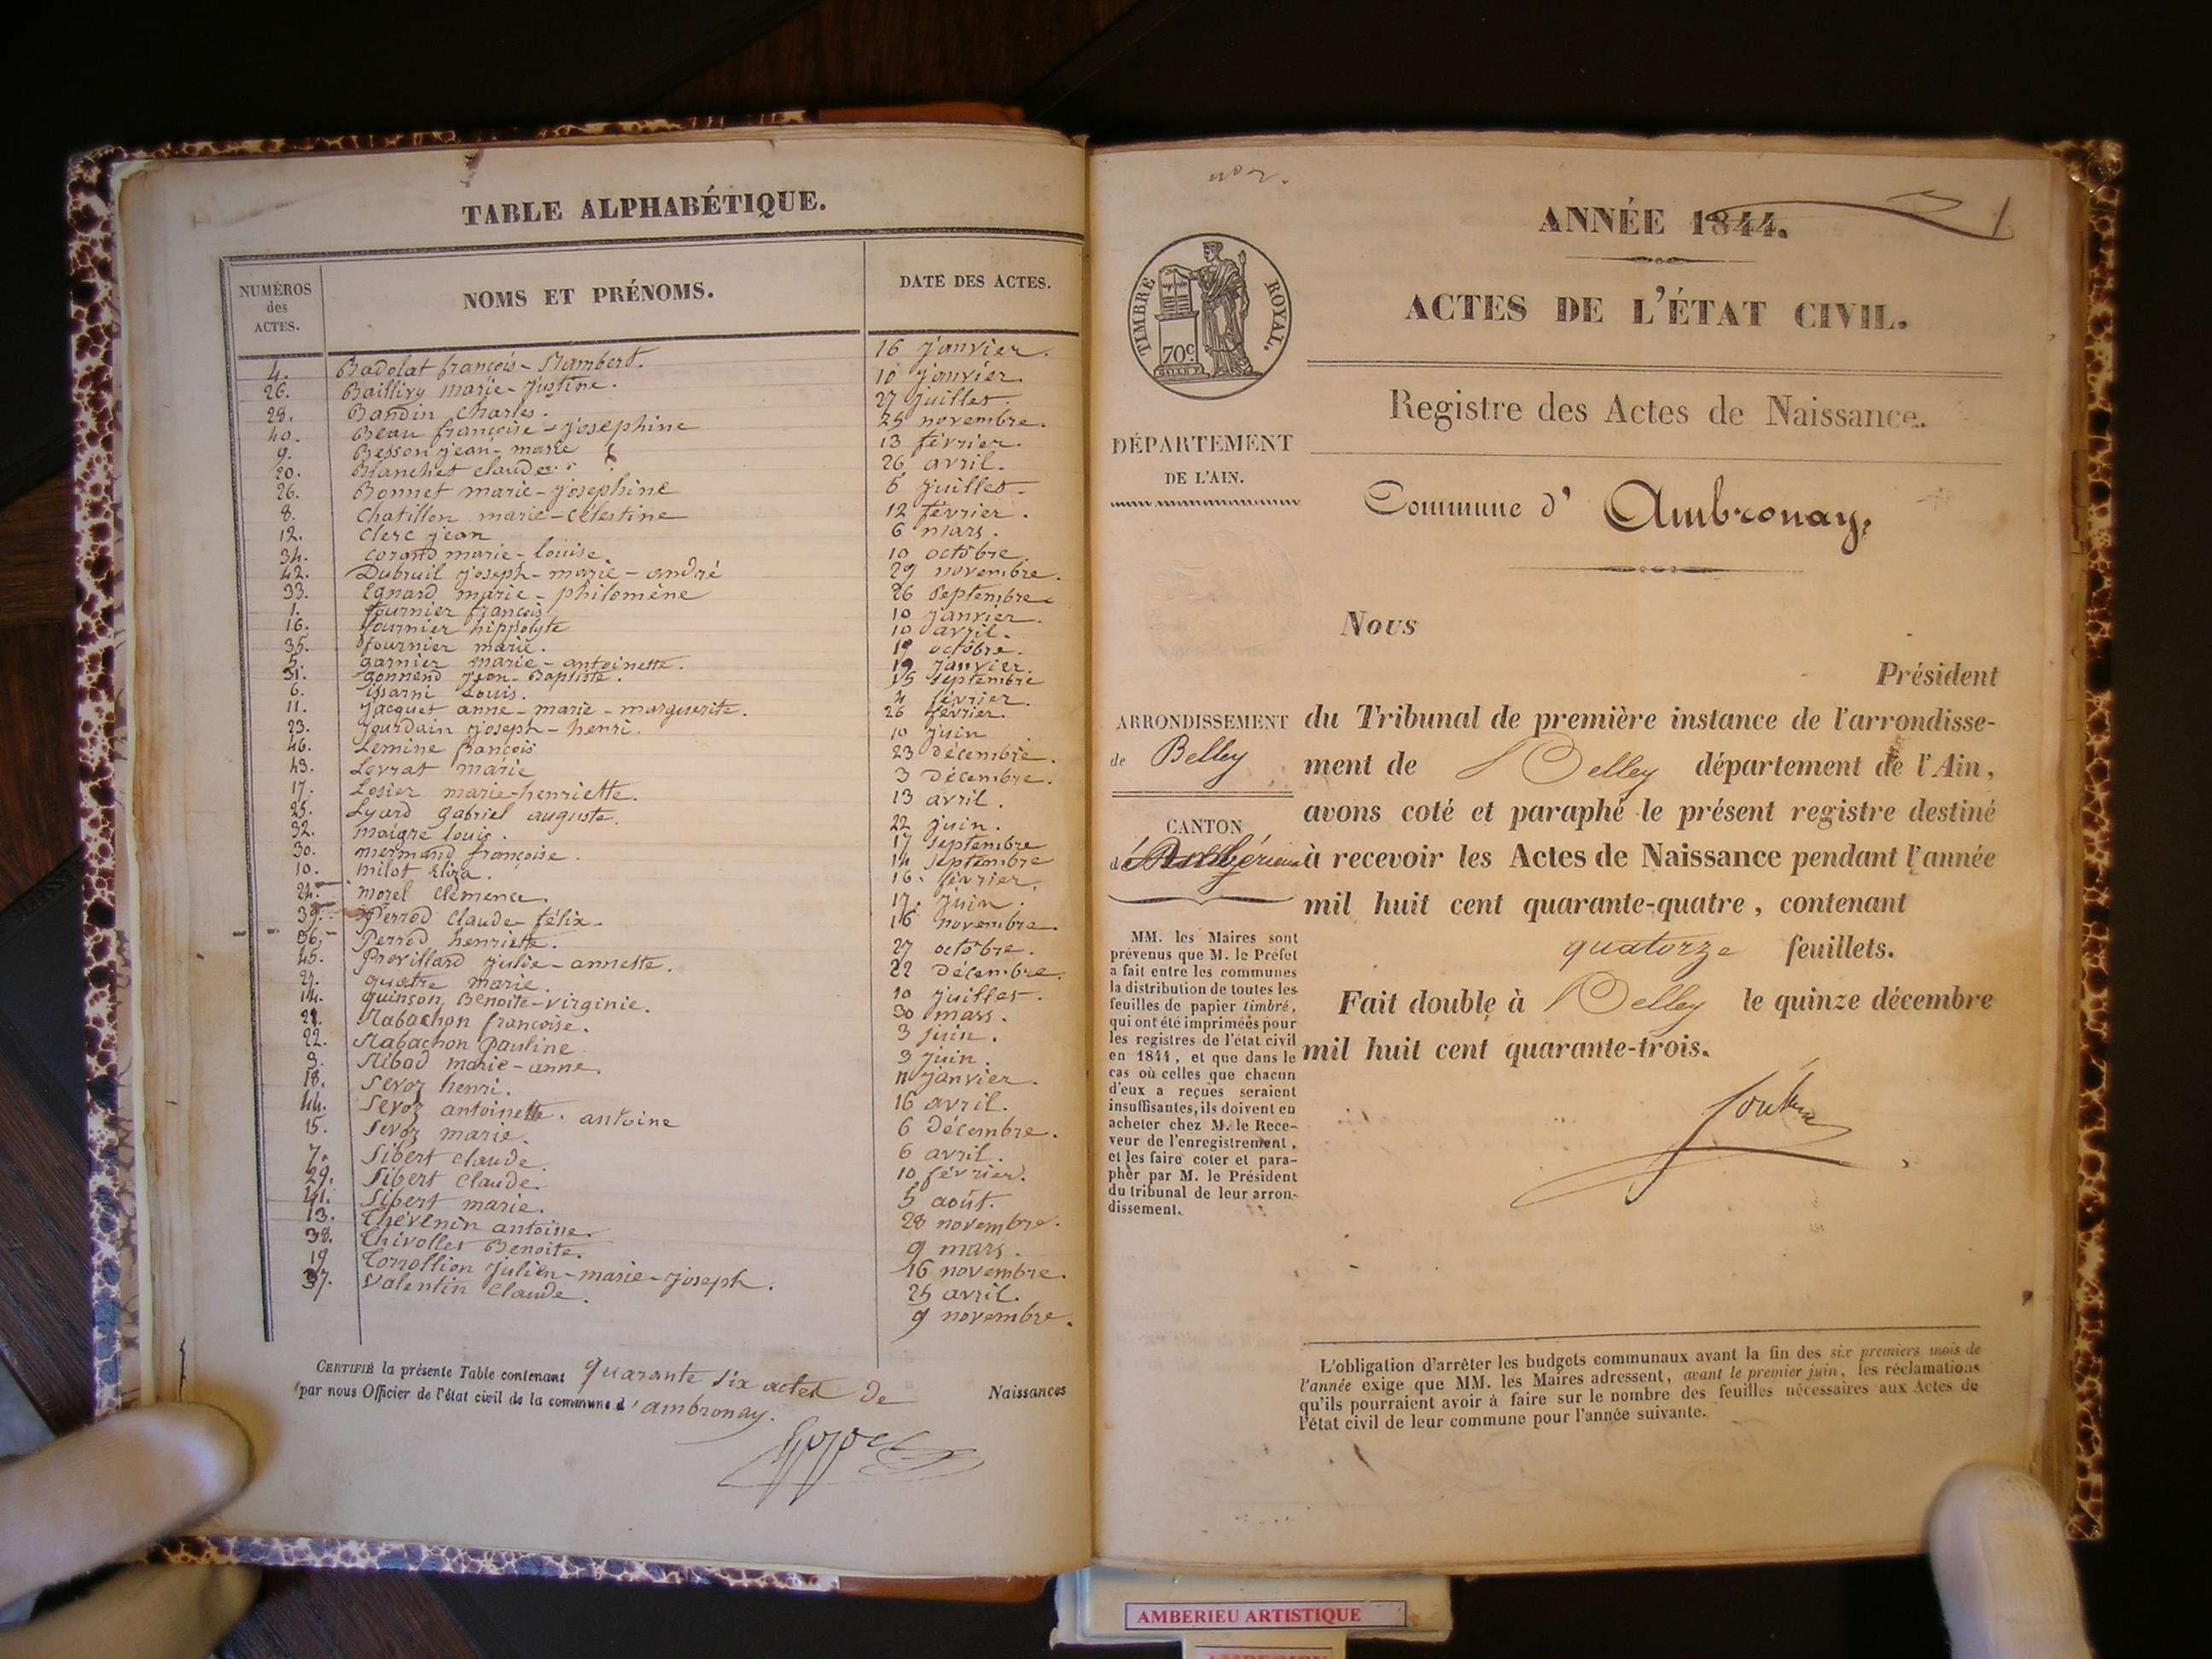 TABLE ALPHABÉTIQUE.
NUMÉROS des ACTES. NOMS ET PRÉNOMS. DATE DES ACTES.
4. Badolat françois - Rambert. 16 janvier.
26. Baillivy marie - justine. 10 janvier.
28. Bandin Charles. 27 juillet.
40. Beau françoise - josephine 25 novembre.
9. Besson jean - marie 13 février.
20. Blanchet claude 26 avril.
26. Bonnet marie - josephine 6 juillet.
8. Chatillon marie - célestine 12 février.
12. Clerc jean 6 mars.
34. corand marie - louise. 19 octobre.
42. Dubruil joseph - marie - andré 29 novembre.
33. Egnard marie - philomène 26 septembre
1. fournier françois 10 janvier.
16. fournier hippolyte 10 avril.
35. fournier marie. 19 octobre.
5. garnier marie - antoinette. 19 janvier.
31. gonnend jean - Baptiste. 15 septembre
6. issarni Louis. 4 février.
11. jacquet anne - marie - marguerite. 26 février.
23. jourdain joseph - henri. 10 juin
46. Lemine francois 23 décembre.
43. Levrat marie 3 Décembre.
17. Losier marie-henriette. 13 avril.
25. Lyard gabriel auguste. 22 juin.
32. maigre louis. 17 septembre
30. mermand françoise. 14 septembre
10. milot Eliza. 16. février.
24. morel clémence. 17. juin.
39. Perrod Claude - félix. 16 novembre.
36. Perrod henriette. 27 octobre.
45. Provillard julie - annette. 22 Décembre.
27. quatre marie. 10 juillet.
14. quinson Benoite - virginie. 30 mars.
21. Rabachon françoise. 3 juin.
22. Rabachon Pauline 3 juin.
3. Ribod marie - anne. 11 janvier.
18. Sevoz henri. 16 avril.
44. Sevoz antoinette. antoine 6 décembre.
15. Sevoz marie. 6 avril.
7. Sibert claude. 10 février.
29. Sibert claude. 5 août.
41. Sibert marie. 28 novembre.
13. Thévenin antoine. 9 mars.
38. Thivollet Benoite. 16 novembre.
19 Torrollion julien - marie - joseph. 25 avril.
37. Valentin Claude. 9 novembre.
CERTIFIÉ la présente Table contenant quarante six actes de Naissances
par nous Officier de l'état civil de la commune d'ambronay.
n° 2.
1
ANNÉE 1844.
ACTES DE L'ÉTAT CIVIL.
TIMBRE ROYAL.
70c
Registre des Actes de Naissance.
DÉPARTEMENT
DE L'AIN.
Commune d' Ambronay.
Nous
Président
ARRONDISSEMENT
de Belley
CANTON
d'Ambérieux
du Tribunal de première instance de l'arrondisse-
ment de Belley département de l'Ain,
avons coté et paraphé le présent registre destiné
à recevoir les Actes de Naissance pendant l'année
mil huit cent quarante-quatre, contenant
quatorze feuillets.
Fait double à Belley le quinze décembre
mil huit cent quarante-trois.
MM. les Maires sont
prévenus que M. le Préfet
a fait entre les communes
la distribution de toutes les
feuilles de papier timbré,
qui ont été imprimées pour
les registres de l'état civil
en 1844, et que dans le
cas où celles que chacun
d'eux a reçues seraient
insuffisantes, ils doivent en
acheter chez M. le Rece-
veur de l'enregistrement,
et les faire coter et para-
pher par M. le Président
du tribunal de leur arron-
dissement.
L'obligation d'arrêter les budgets communaux avant la fin des six premiers mois de
l'année exige que MM. les Maires adressent, avant le premier juin, les réclamations
qu'ils pourraient avoir à faire sur le nombre des feuilles nécessaires aux Actes de
l'état civil de leur commune pour l'année suivante.
AMBERIEU ARTISTIQUE